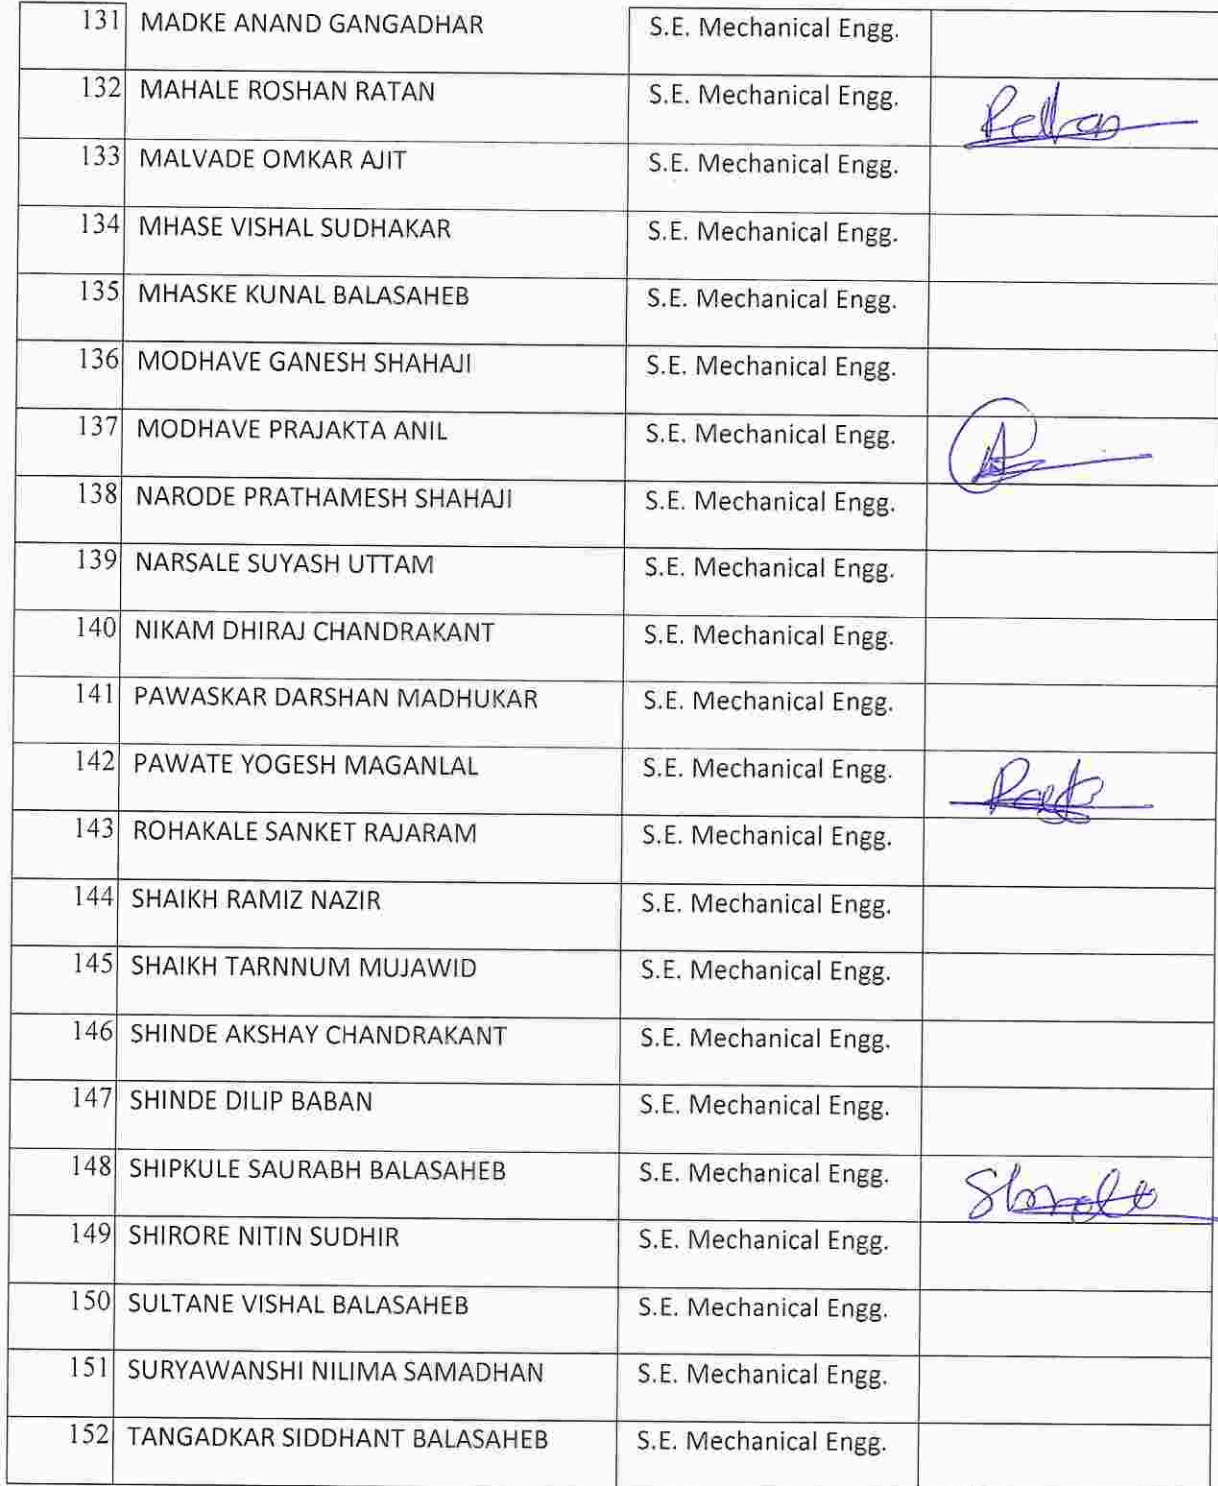 131 MADKE ANAND GANGADHAR S.E. Mechanical Engg.
132 MAHALE ROSHAN RATAN S.E. Mechanical Engg.
133 MALVADE OMKAR AJIT S.E. Mechanical Engg.
134 MHASE VISHAL SUDHAKAR S.E. Mechanical Engg.
135 MHASKE KUNAL BALASAHEB S.E. Mechanical Engg.
136 MODHAVE GANESH SHAHAJI S.E. Mechanical Engg.
137 MODHAVE PRAJAKTA ANIL S.E. Mechanical Engg.
138 NARODE PRATHAMESH SHAHAJI S.E. Mechanical Engg.
139 NARSALE SUYASH UTTAM S.E. Mechanical Engg.
140 NIKAM DHIRAJ CHANDRAKANT S.E. Mechanical Engg.
141 PAWASKAR DARSHAN MADHUKAR S.E. Mechanical Engg.
142 PAWATE YOGESH MAGANLAL S.E. Mechanical Engg.
143 ROHAKALE SANKET RAJARAM S.E. Mechanical Engg.
144 SHAIKH RAMIZ NAZIR S.E. Mechanical Engg.
145 SHAIKH TARNNUM MUJAWID S.E. Mechanical Engg.
146 SHINDE AKSHAY CHANDRAKANT S.E. Mechanical Engg.
147 SHINDE DILIP BABAN S.E. Mechanical Engg.
148 SHIPKULE SAURABH BALASAHEB S.E. Mechanical Engg.
149 SHIRORE NITIN SUDHIR S.E. Mechanical Engg.
150 SULTANE VISHAL BALASAHEB S.E. Mechanical Engg.
151 SURYAWANSHI NILIMA SAMADHAN S.E. Mechanical Engg.
152 TANGADKAR SIDDHANT BALASAHEB S.E. Mechanical Engg.